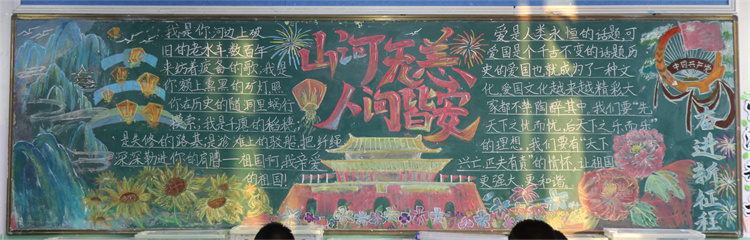 我是你河边上破
旧的老水车,数百年
来纺着疲惫的歌,我是
你额上熏黑的矿灯,照
你在历史的隧洞里蜗行
摸索;我是干瘪的稻穗;
是失修的路基;是淤滩上的驳船,把纤绳
深深勒进你的肩膊——祖国呵,我亲爱
的祖国!
山河无恙
人间皆安
爱是人类永恒的话题,可
爱国是个千古不变的话题,历
史的爱国也就成为了一种文
化,爱国文化越来越精彩,大
家都不禁陶醉其中,我们要"先
天下之忧而忧,后天下之乐而乐"
的理想,我们要有"天下
兴亡,匹夫有责"的情怀,让祖国
更强大,更和谐。
中国共产党
奋进新征程